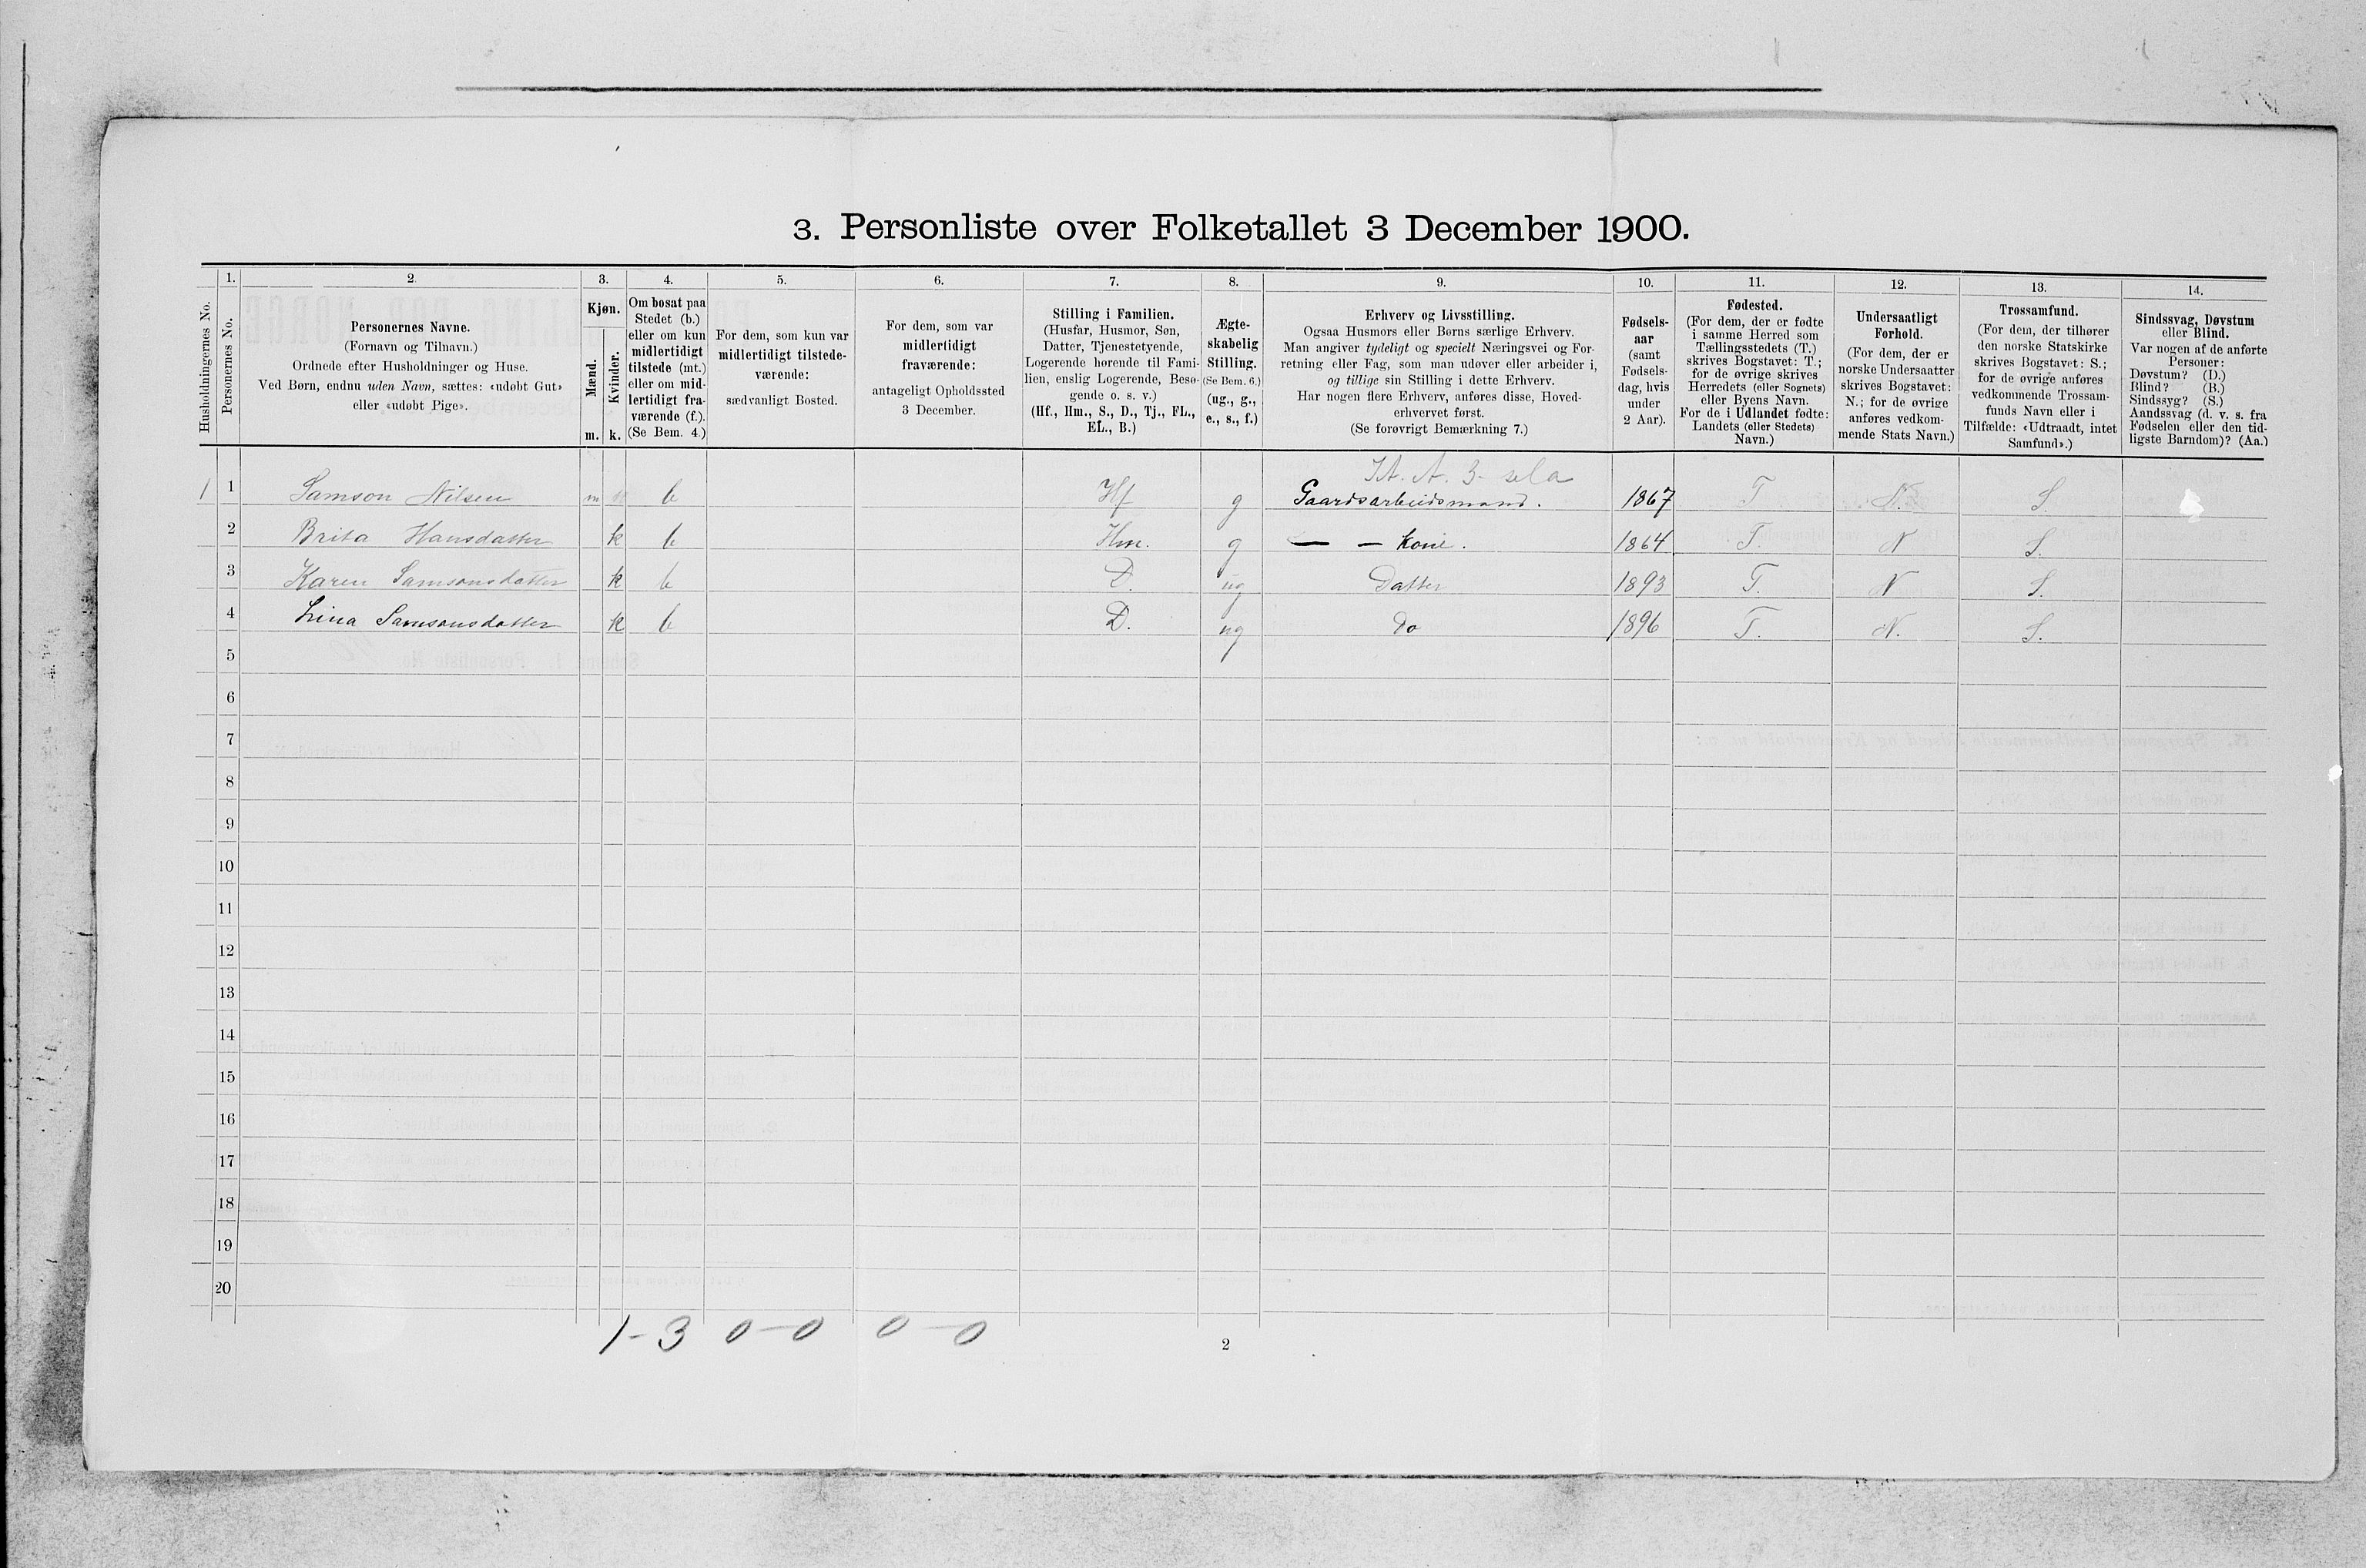 3. Personliste over Folketallet 3 December 1900.
Husholdningernes No.
1.
Personernes No.
2.
Personernes Navne.
(Fornavn og Tilnavn.)
Ordnede efter Husholdninger og Huse.
Ved Børn, endnu uden Navn, sættes: «udøbt Gut»
eller «udøbt Pige».
3.
Kjøn.
Mænd.
Kvinder.
m.
k.
4.
Om bosat paa
Stedet (b.)
eller om kun
midlertidigt
tilstede (mt.)
eller om mid-
lertidigt fra-
værende (f.).
(Se Bem. 4.)
5.
For dem, som kun var
midlertidigt tilstede-
værende:
sædvanligt Bosted.
6.
For dem, som var
midlertidigt
fraværende:
antageligt Opholdssted
3 December.
7.
Stilling i Familien.
(Husfar, Husmor, Søn,
Datter, Tjenestetyende,
Logerende hørende til Fami-
lien, enslig Logerende, Besø-
gende o. s. v.)
(Hf., Hm., S., D., Tj., FL.,
EL., B.)
8.
Ægte-
skabelig
Stilling.
(Se Bem. 6.)
(ug., g.,
e., s., f.)
9.
Erhverv og Livsstilling.
Ogsaa Husmors eller Børns særlige Erhverv.
Man angiver tydeligt og specielt Næringsvei og For-
retning eller Fag, som man udøver eller arbeider i,
og tillige sin Stilling i dette Erhverv.
Har nogen flere Erhverv, anføres disse, Hoved-
erhvervet først.
(Se forøvrigt Bemærkning 7.)
10.
Fødsels-
aar
(samt
Fødsels-
dag, hvis
under
2 Aar).
11.
Fødested.
(For dem, der er fødte
i samme Herred som
Tællingsstedets (T.)
skrives Bogstavet: T.;
for de øvrige skrives
Herredets (eller Sognets)
eller Byens Navn.
For de i Udlandet fødte:
Landets (eller Stedets)
Navn.)
12.
Undersaatligt
Forhold.
(For dem, der er
norske Undersaatter
skrives Bogstavet:
N.; for de øvrige
anføres vedkom-
mende Stats Navn.)
13.
Trossamfund.
(For dem, der tilhører
den norske Statskirke
skrives Bogstavet: S.;
for de øvrige anføres
vedkommende Trossam-
funds Navn eller i
Tilfælde: «Udtraadt, intet
Samfund».)
14.
Sindssvag, Døvstum
eller Blind.
Var nogen af de anførte
Personer:
Døvstum? (D.)
Blind? (B.)
Sindssyg? (S.)
Aandssvag (d. v. s. fra
Fødselen eller den tid-
ligste Barndom)? (Aa.)
1 1 Samson Nilsen m b Hf g Gaardsarbeidsmand. 1867 T N. S.
2 Brita Hansdatter k b Hm. g — — kone. 1864 T. N S.
3 Karen Samsonsdatter k b D. ug Datter 1893 T. N S.
4 Lina Samsonsdatter k b D. ug Do 1896 T. N. S.
5
6
7
8
9
10
11
12
13
14
15
16
17
18
19
20
1-3 0-0 0-0
2